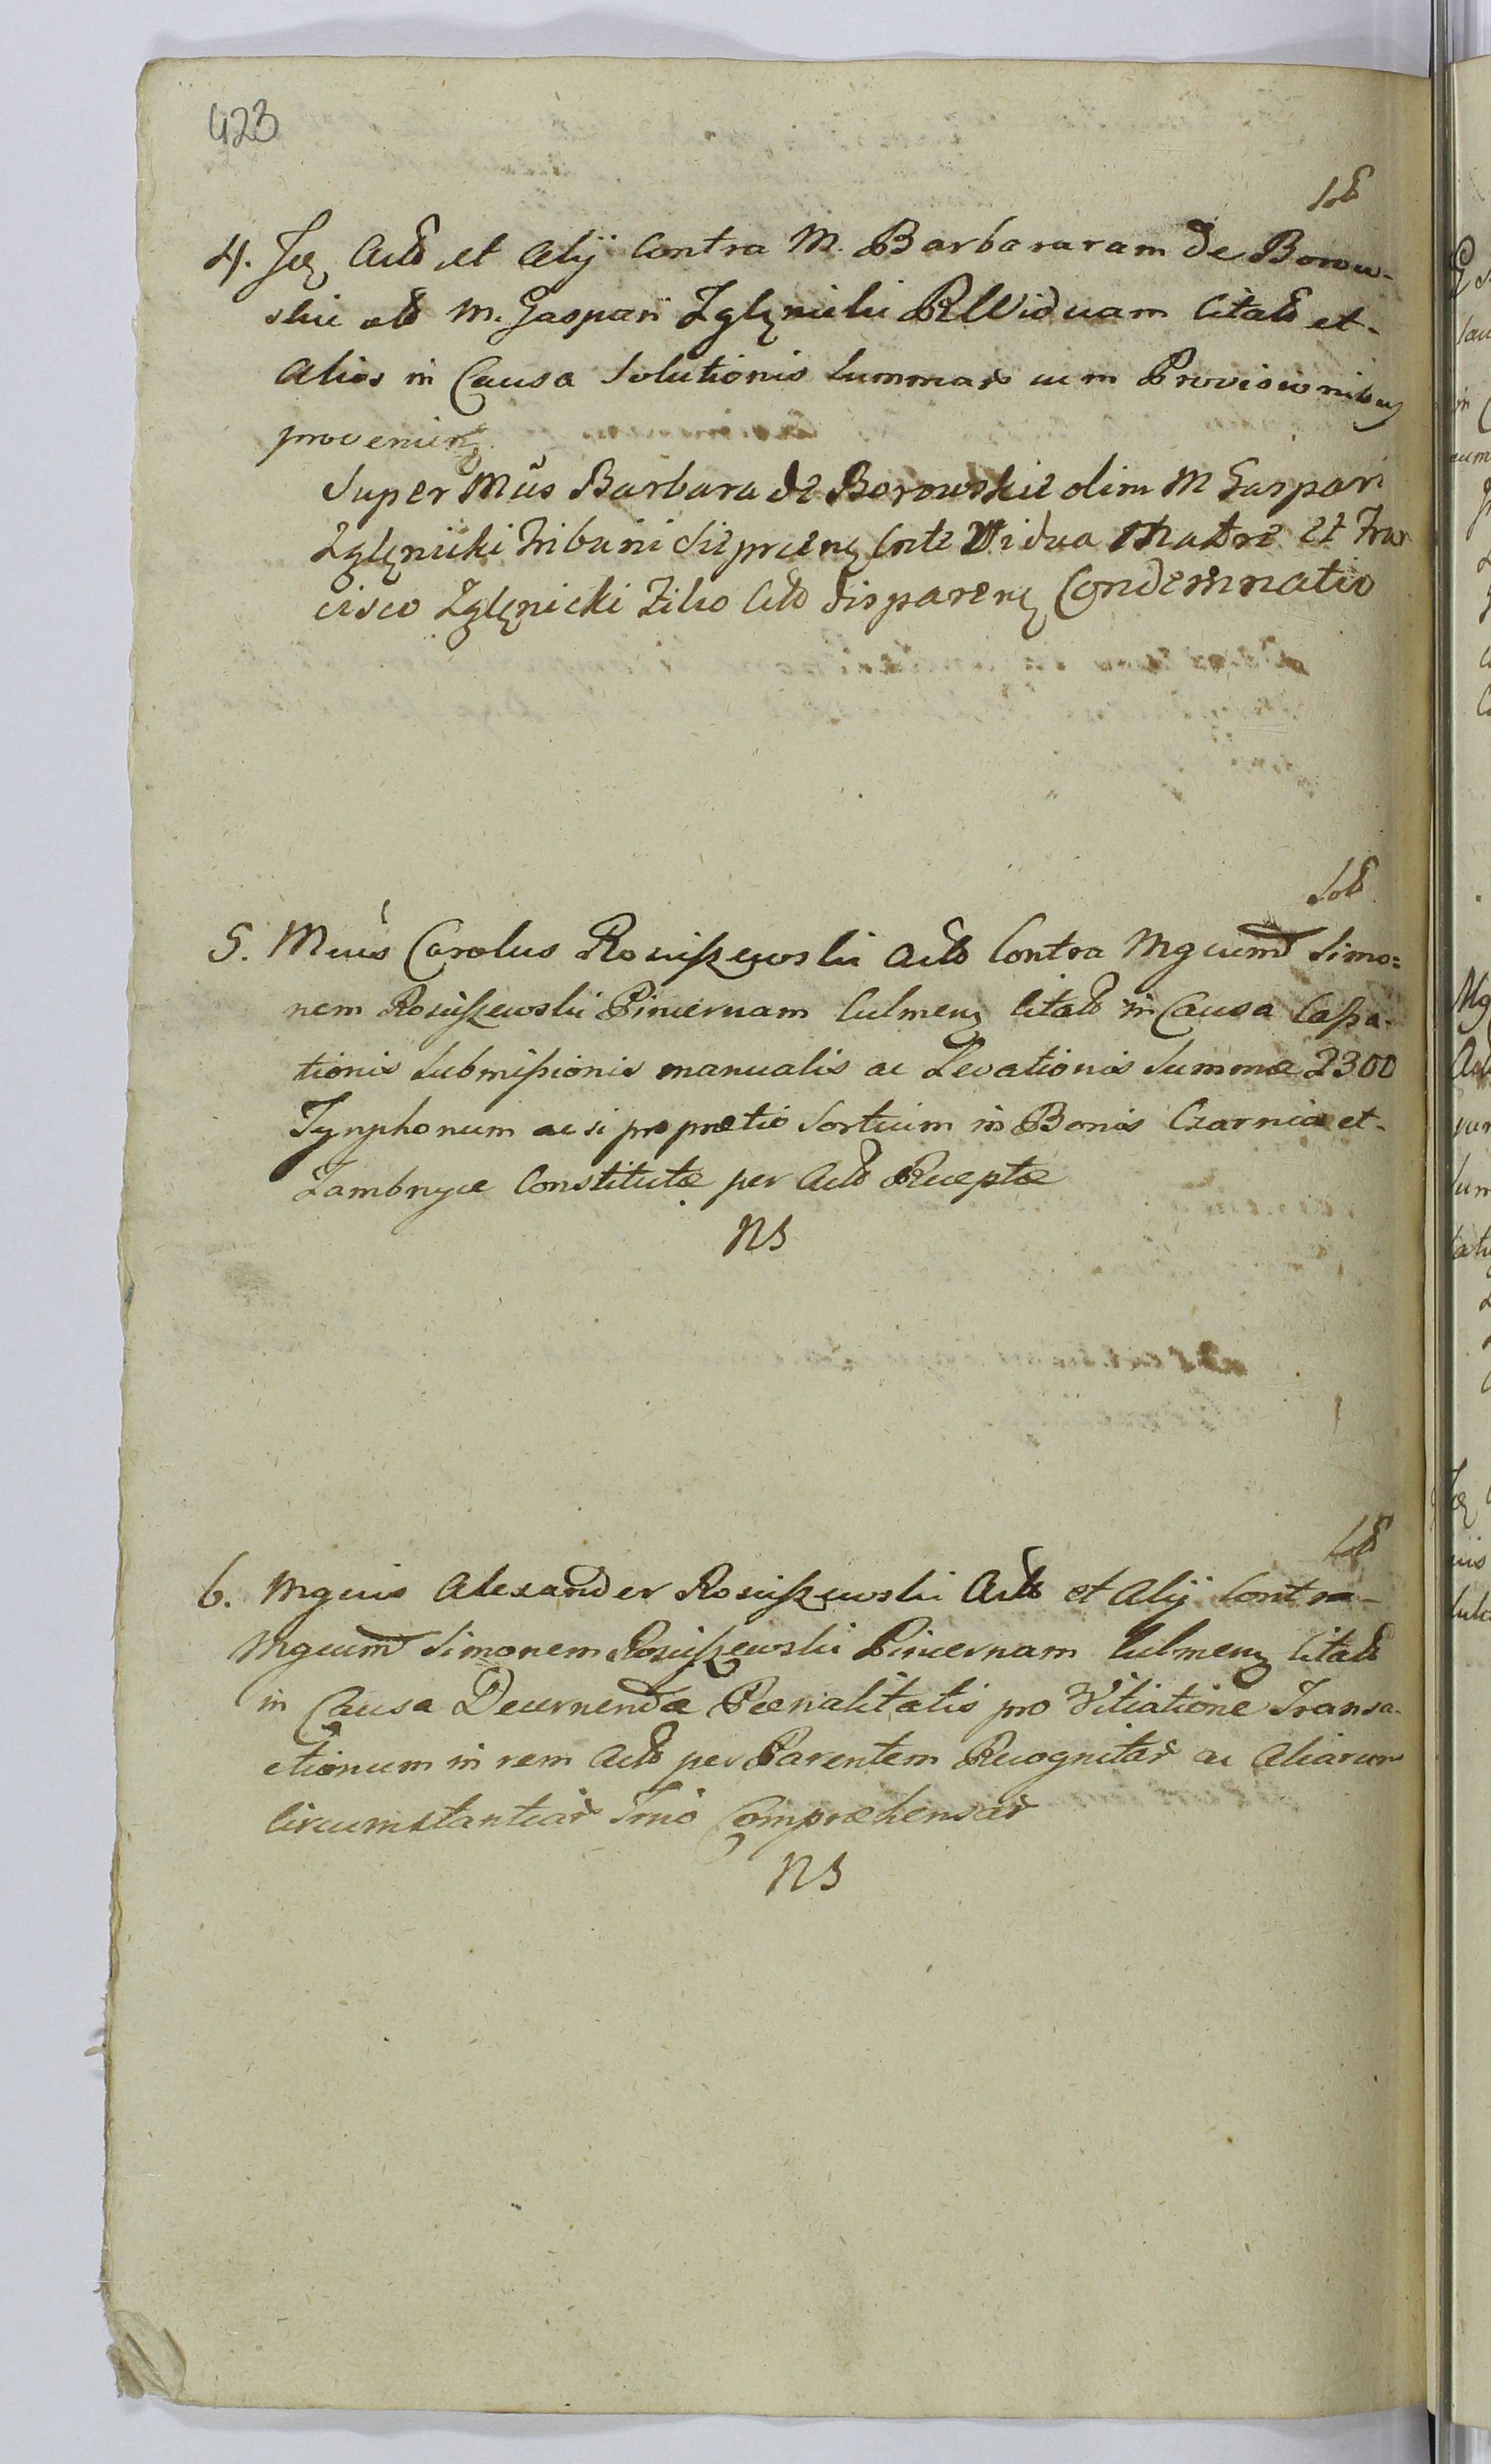 423
Sol
4. Idę Actō et Alij Contra M. Barbararam de Borow-
skie olō M. Gaspari Zglęnicki Rel Viduam Citatō et
Alios in Causa Solutionis Summar cum Provisionibus
provenienę
Super Mūs Barbara de Borowskie olim M Gaspari
Zglęnicki Tribuni Sieprcenę Corte Vidua Matre et Fran
cisco Zglęnicki Filio Citō disparenę Condemnatio
Sol
5. Mcus Carolus Rosciszewski Actō Contra Mgcum Simo=
nem Rosciszewski Pincernam Culmenę Citatō in Causa Cassa-
tionis Submissionis manualis ac Levationis Summæ 2300
Tynphonum ac si pro prætio Sortium in Bonis Czarnia et
Zambrzyce Constitutæ per Actō Receptæ
NS
Sol
6. Mgcus Alexander Rosciszewski Actō et Alij Contra
Mgcum Simonem Rosciszewski Pincernam Culmenę Citatō
in Causa Decernendæ Pœnalitatis pro Vitiatione Transa-
ctionum in rem Actō per Parentem Recognitar ac Aliarum
Circumstantiar Trmō Compræhensar
NS